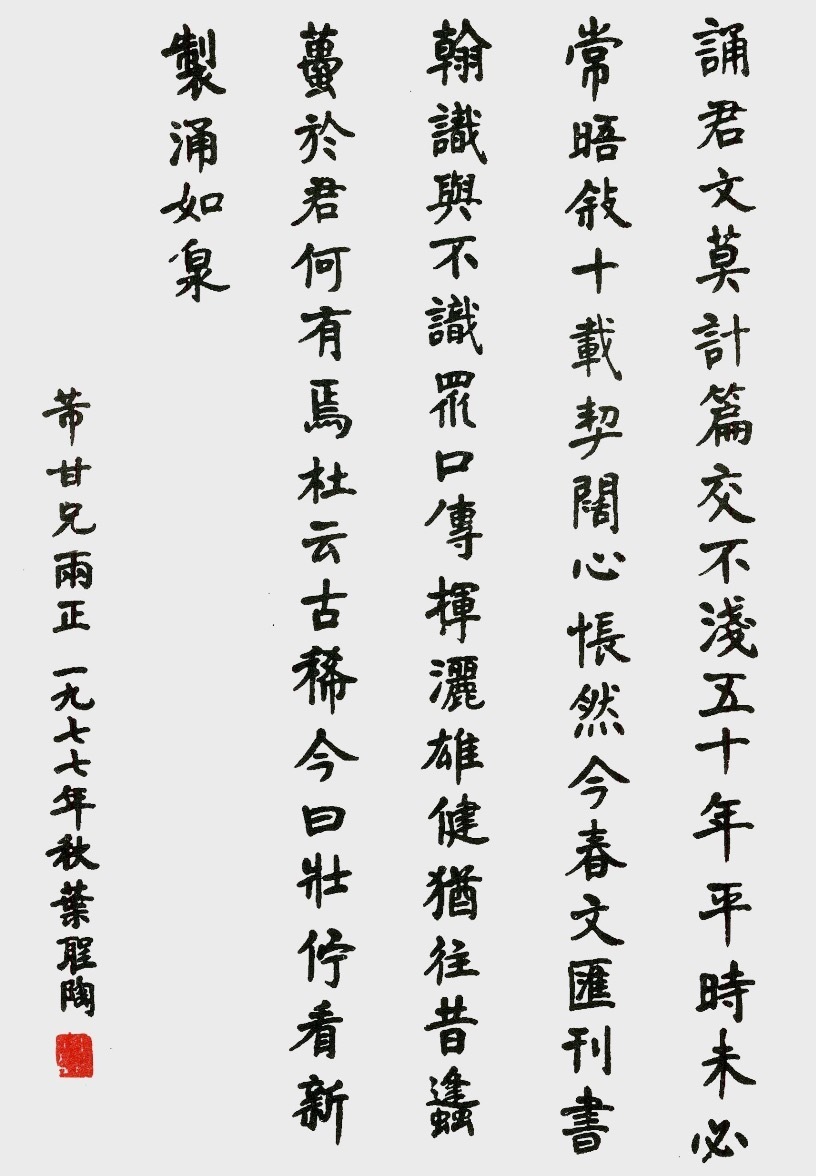 誦君文莫計篇交不淺五十年平時未必
常晤敍十載契闊心悵然今春文匯刊書
翰識與不識眾口傳揮灑雄健猶往昔蠭
蠆於君何有焉杜云古稀今曰壯佇看新
製涌如泉
芾甘兄兩正 一九七七年秋葉聖陶